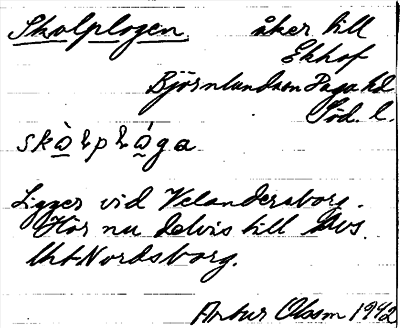 Skolplogen. åker till
Ekhof
Björnlunda sn Daga hd
Söd. l.
skò̱lpló̱ga
Ligger vid Velandersborg.
Hör nu delvis till Avs.
Nordsborg.
Artur Olsson 1942